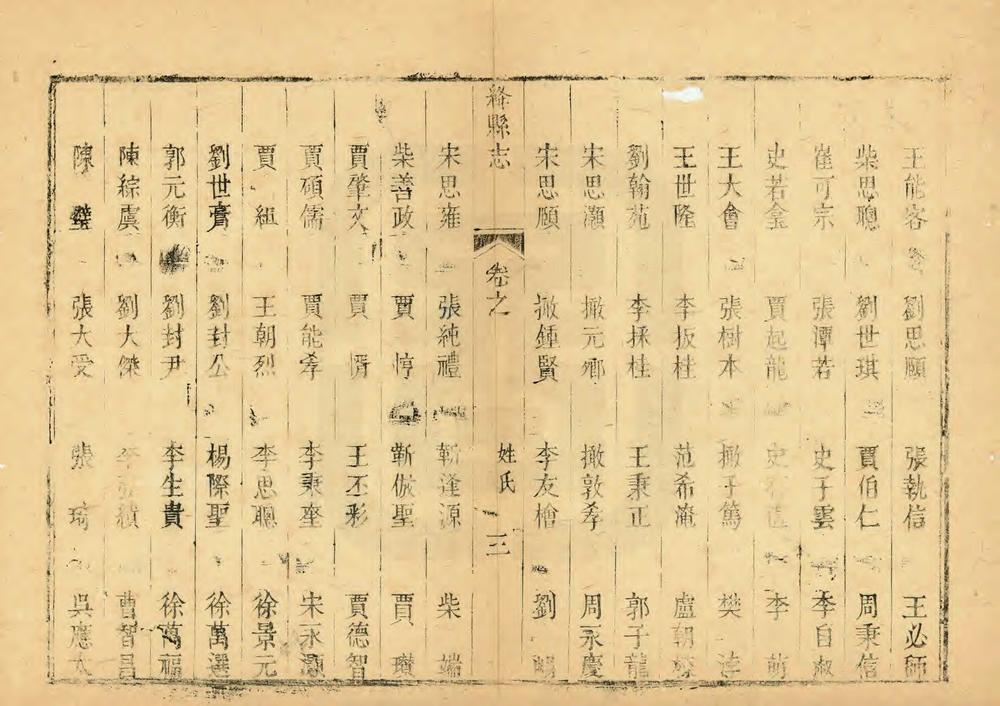 王能客 劉思願 張執信 王必師
柴思聰 劉世琪 賈伯仁 周秉信
崔可宗 張潭若 史子雲 李自淑
史若金 賈起龍 史 李
王大會 張樹本 撖子篤 樊
王世隆 李扳桂 范希淹 盧朝
劉翰苑 李採桂 王秉正 郭子龍
宋思灝 撖元鄉 撖敦孝 周永慶
宋思願 撖鍾賢 李友檜 劉暢
絳縣志 卷之 姓氏 三
宋思雍 張純禮 靳逢源 柴端
柴善政 賈惇 靳倣聖 賈瓚
賈肇文 賈惰 王丕彩 賈德智
賈碩儒 賈能孝 李秉奎 宋永灝
賈組 王朝烈 李思聰 徐景元
劉世膏 劉封公 楊際聖 徐萬選
郭元衡 劉封尹 李生貴 徐萬福
陳綜虞 劉大傑 李 績 曹智昌
陳 張大受 張琦 吳應太